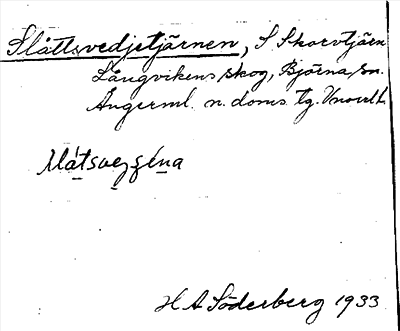 Slåttsvedjetjärnen, S Skorvtjärn
Långvikens skog, Björna sn.
Ångerml. n. doms. tg. Vnorrl.
H A Söderberg 1933